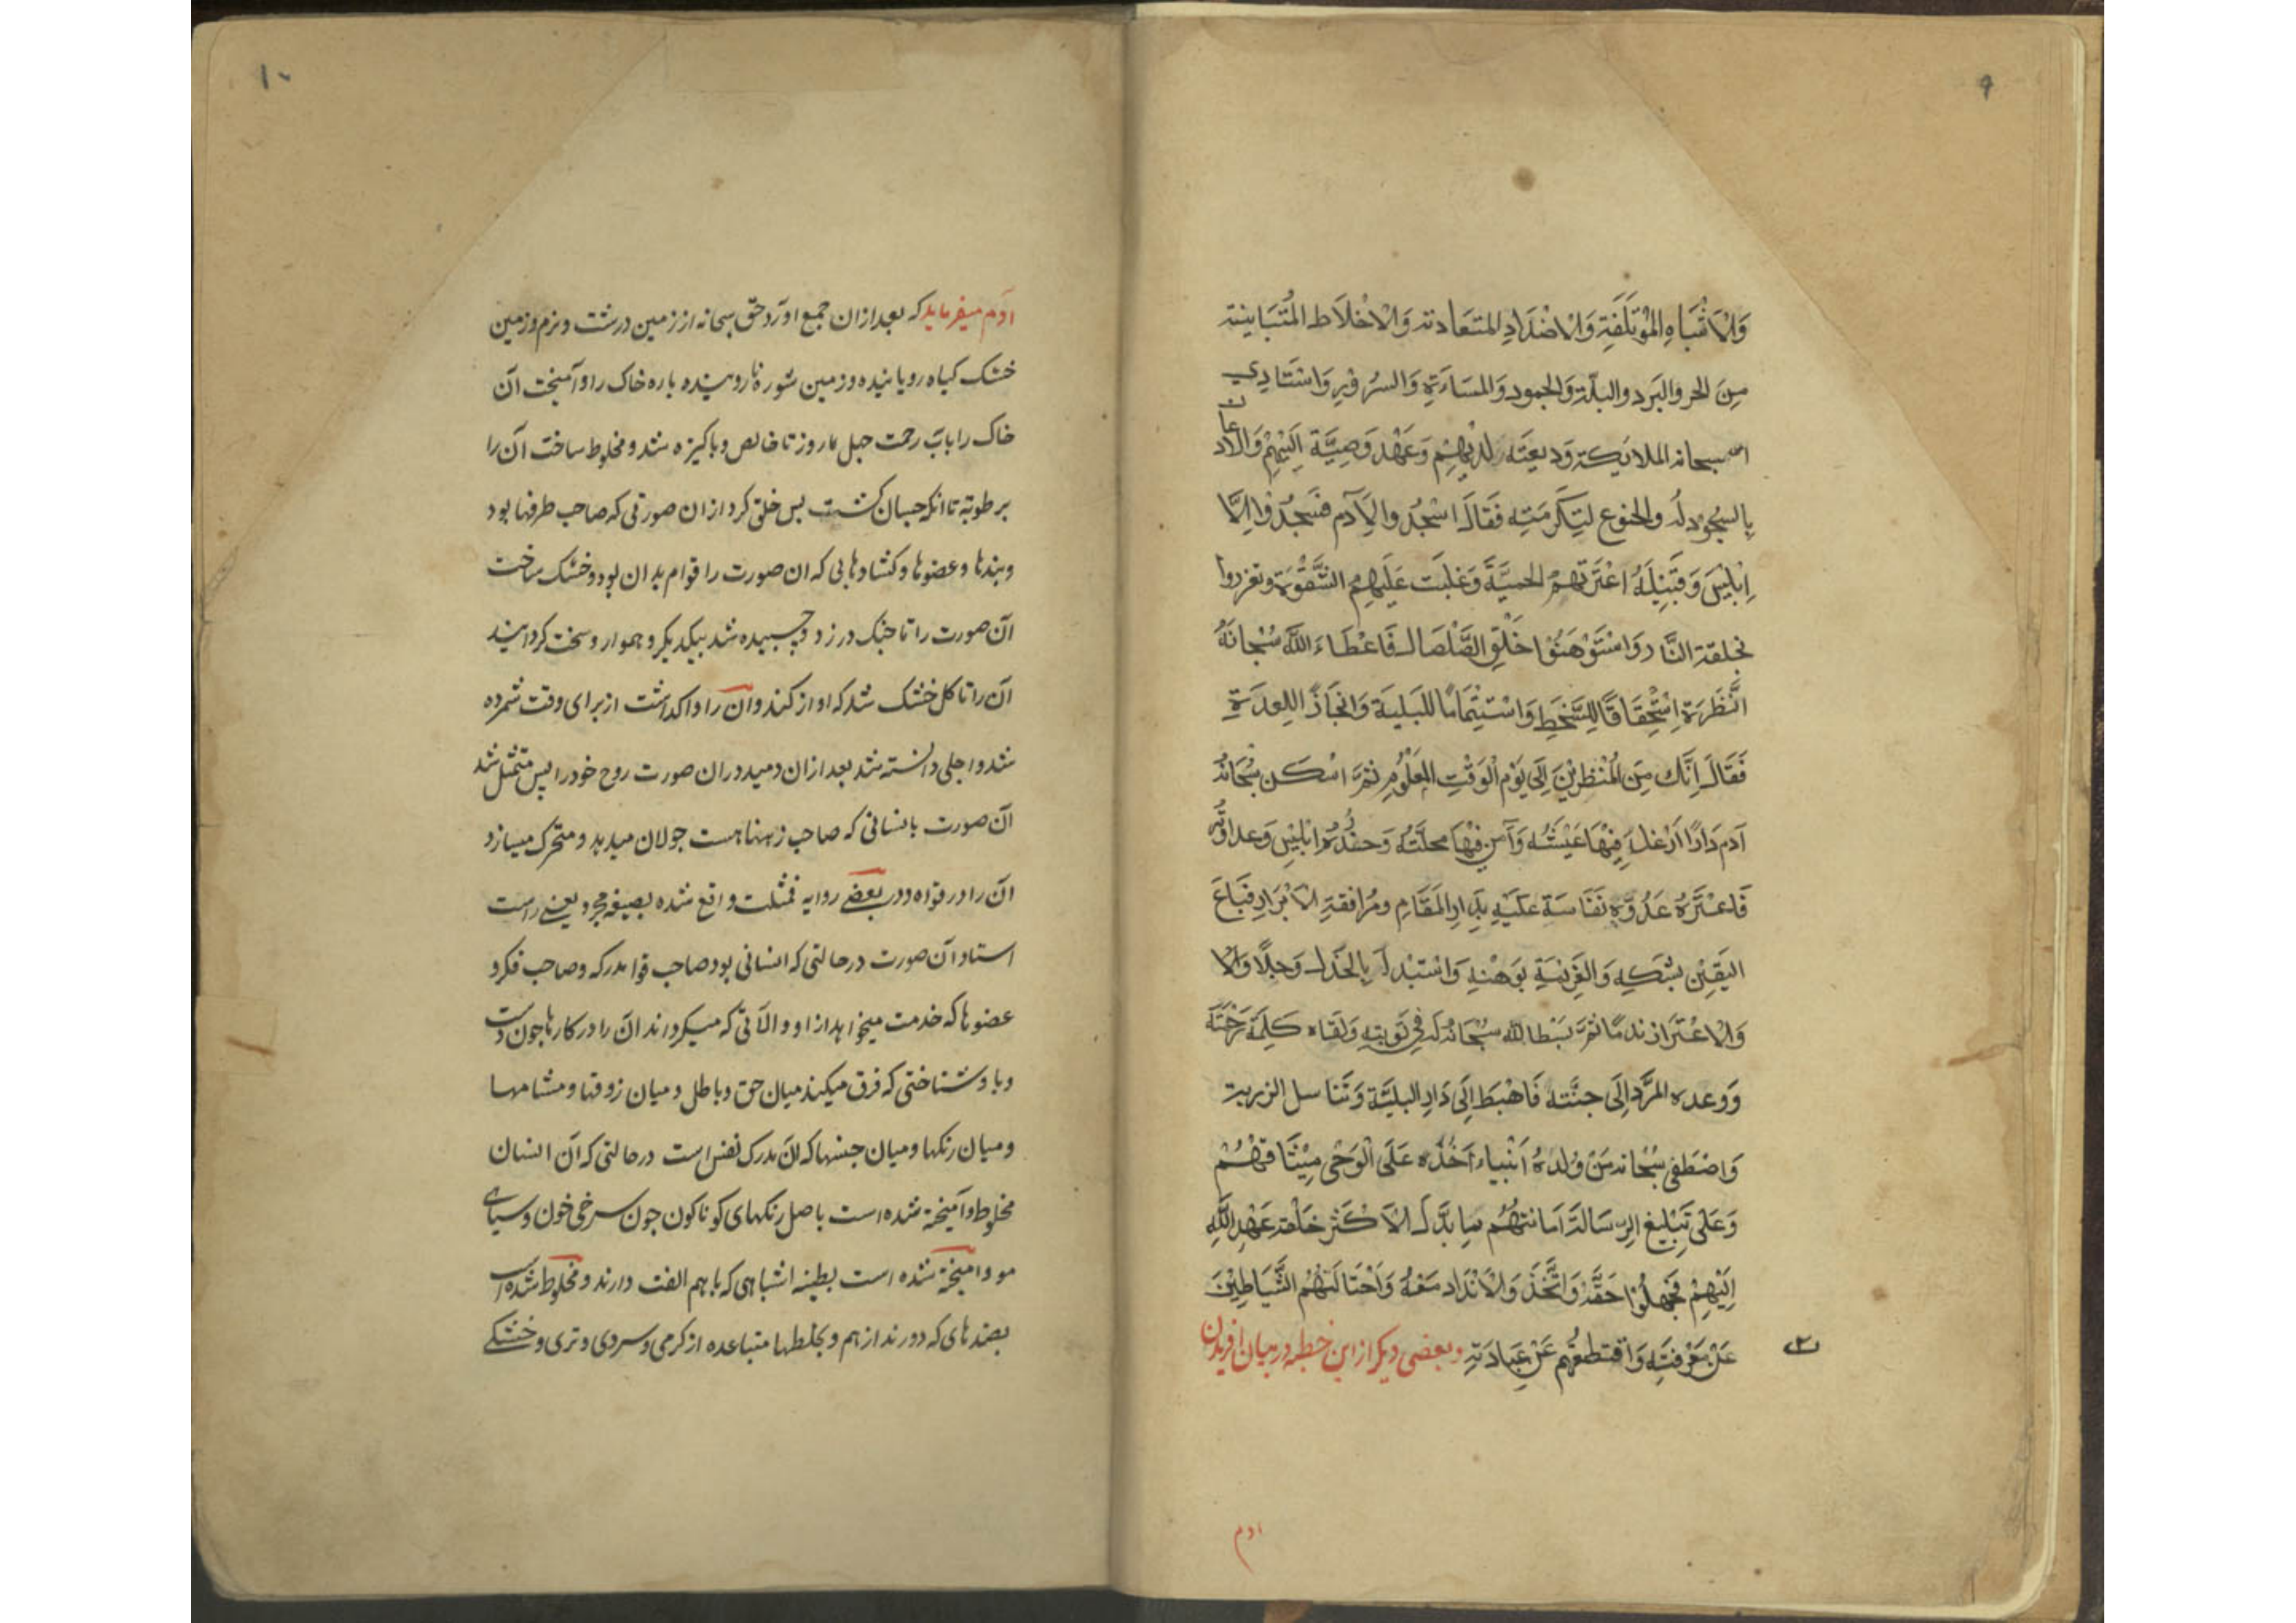 ٩
وَالْاَشْبَاهِ الْمُؤْتَلِفَةِ وَالْاَضْدَادِ المتعَادته وَالْاَخْلَاطِ المُتَبَاينة
مِنَ الحر والبَرد والبلّة وَالجمود وَالمسَاءَةِ وَالسرُورِ وَاسْتَادي
الله سبحانه الملائِكة وَديعَتَه لديْهِمْ وَعَهْد وَصِيَّة اِلَيْهِمْ وَالاذعان
بِالسجُود لَه وَالخنوع لتِكَرمَتِهِ فَقالَ اسْجُدُوا لِاَدَم فسَجدُوْا اِلَّا
اِبْلِيْسَ وَقَبِيْلَهُ اعْتَرَتهم الحميَّةَ وَغلبَت عَلَيهِم الشَّقْوَة وتعززوا
بخلقة النَّار وَاسْتَوْهَنُوْا خَلْقَ الصَّلْصَالِ فَاعْطَاءَ اللَّه سُبْحَانَهُ
النَّظَرَة اِسْتِحْقَاقًا لِلسَّخَطِ وَاسْتِتْمَامًا للبَليَة وَانْجَازًا للعِدَةِ
فَقَالَ اِنَّكَ مِنَ الْمُنْظرِيْنَ اِلَى يَوْم الْوَقْتِ المَعْلُوْمِ ثمَّ اسْكَن سُبْحَانهُ
آدم دَارًا اَرْغَدَ فِيْهَا عَيْشَهُ وَآمن فيهَا محلَّتهُ وَحذّرهُ ابْلِيْسَ وَعداوَتَه
فَاغْتَرَّهُ عَدُوّه نَفَاسَة عَلَيْهِ بِدَارِ المَقَامِ ومُرافقةِ الْاَبْرَارِ فبَاعَ
اليَقِيْن بِشَكِّهِ وَالعَزِيْمَة بوَهْنِهِ وَاسْتَبْدلَ بِالجَذَل وَجلًا وَالا
وَالْاِغْتِرَار ندمًا ثمَّ بَسَط الله سبُحَانهُ لَه فِي تَوبتِهِ وَلقَاه كَلِمَة رَحْمَتَه
وَوعده المَرَدّ اِلَى جنَّته فَاهْبَطَ اِلَى دَار البليَّة وَتَناسل الذرية
وَاصْطَفى سُبْحَانه مِنْ وُلدهُ اَنْبياء اَخَذَ عَلَى الْوَحْى مِيْثَاقهُمْ
وَعَلى تَبْلِيغ الرِسَالة اَمَانتهُم لما بَدَّلَ الاَكْثَر خَلقه عَهْد اللَّهِ
اِلَيْهِمْ فجَهِلُوْا حَقَّه وَاتَّخَذَ وَالْاَنْدَاد مَعَهُ وَاحْتَالَتهُم الشَّيَاطِيْنَ
عَنْ مَعْرِفتِه وَاقتطَعتُهم عَنْ عِبادَتِه وبعضى ديكر از اين خطبه در ميان آفريدن
ادم
١٠
آدم ميفرمايد كه بعد از ان جمع اورد حق سبحانه از زمين درشت ونرم وزمين
خشك كياه روياننده وزمين شوره نا روينده پاره خاك را وآميخت آن
خاك را باب رحمت چهل روز تا خالص وپاكيزه شد ومخلوط ساخت آن را
برطوبة تا انكه چسپان گشت پس خلق كرد از ان صورتى كه صاحب طرفها بود
وبندها وعضوها وكشادهايى كه ان صورت را قوام بدان بود وخشك ساخت
آن صورت را تا چنك در زد وچسپيده شد بيكديكر وهموار وسخت كردانيد
آن را تا كل خشك شد كه اواز كند وان را واكذاشت از براى وقت شمرده
شد واجلى دانسته شد بعد از ان دميد در ان صورت روح خود را پس متمثل شد
آن صورت بانسانى كه صاحب ذهنها هست جولان ميدهد ومتحرك ميسازد
ان را در قواه ودر بعضى روايه فمثلت واقع شده بصيغه مجرد يعنى راست
استاد آن صورت در حالتى كه انسانى بود صاحب قوا مدركه وصاحب فكر و
عضوها كه خدمت ميخواهد از او والآتى كه ميكرداند ان را در كارها چون دست
وپا وشناختى كه فرق ميكند ميان حق وباطل وميان ذوقها ومشامها
وميان رنكها وميان جنسها كه ان مدرك نفس است در حالتى كه آن انسان
مخلوط وآميخته شده است باصل رنكهاى كوناكون چون سرخى خون وسياهى
مو وآميخته شده است بطينه اشباهى كه با هم الفت دارند ومخلوط شده است
بضدهاى كه دورند از هم وبخلطها متباعده از كرمى وسردى وترى وخشكى